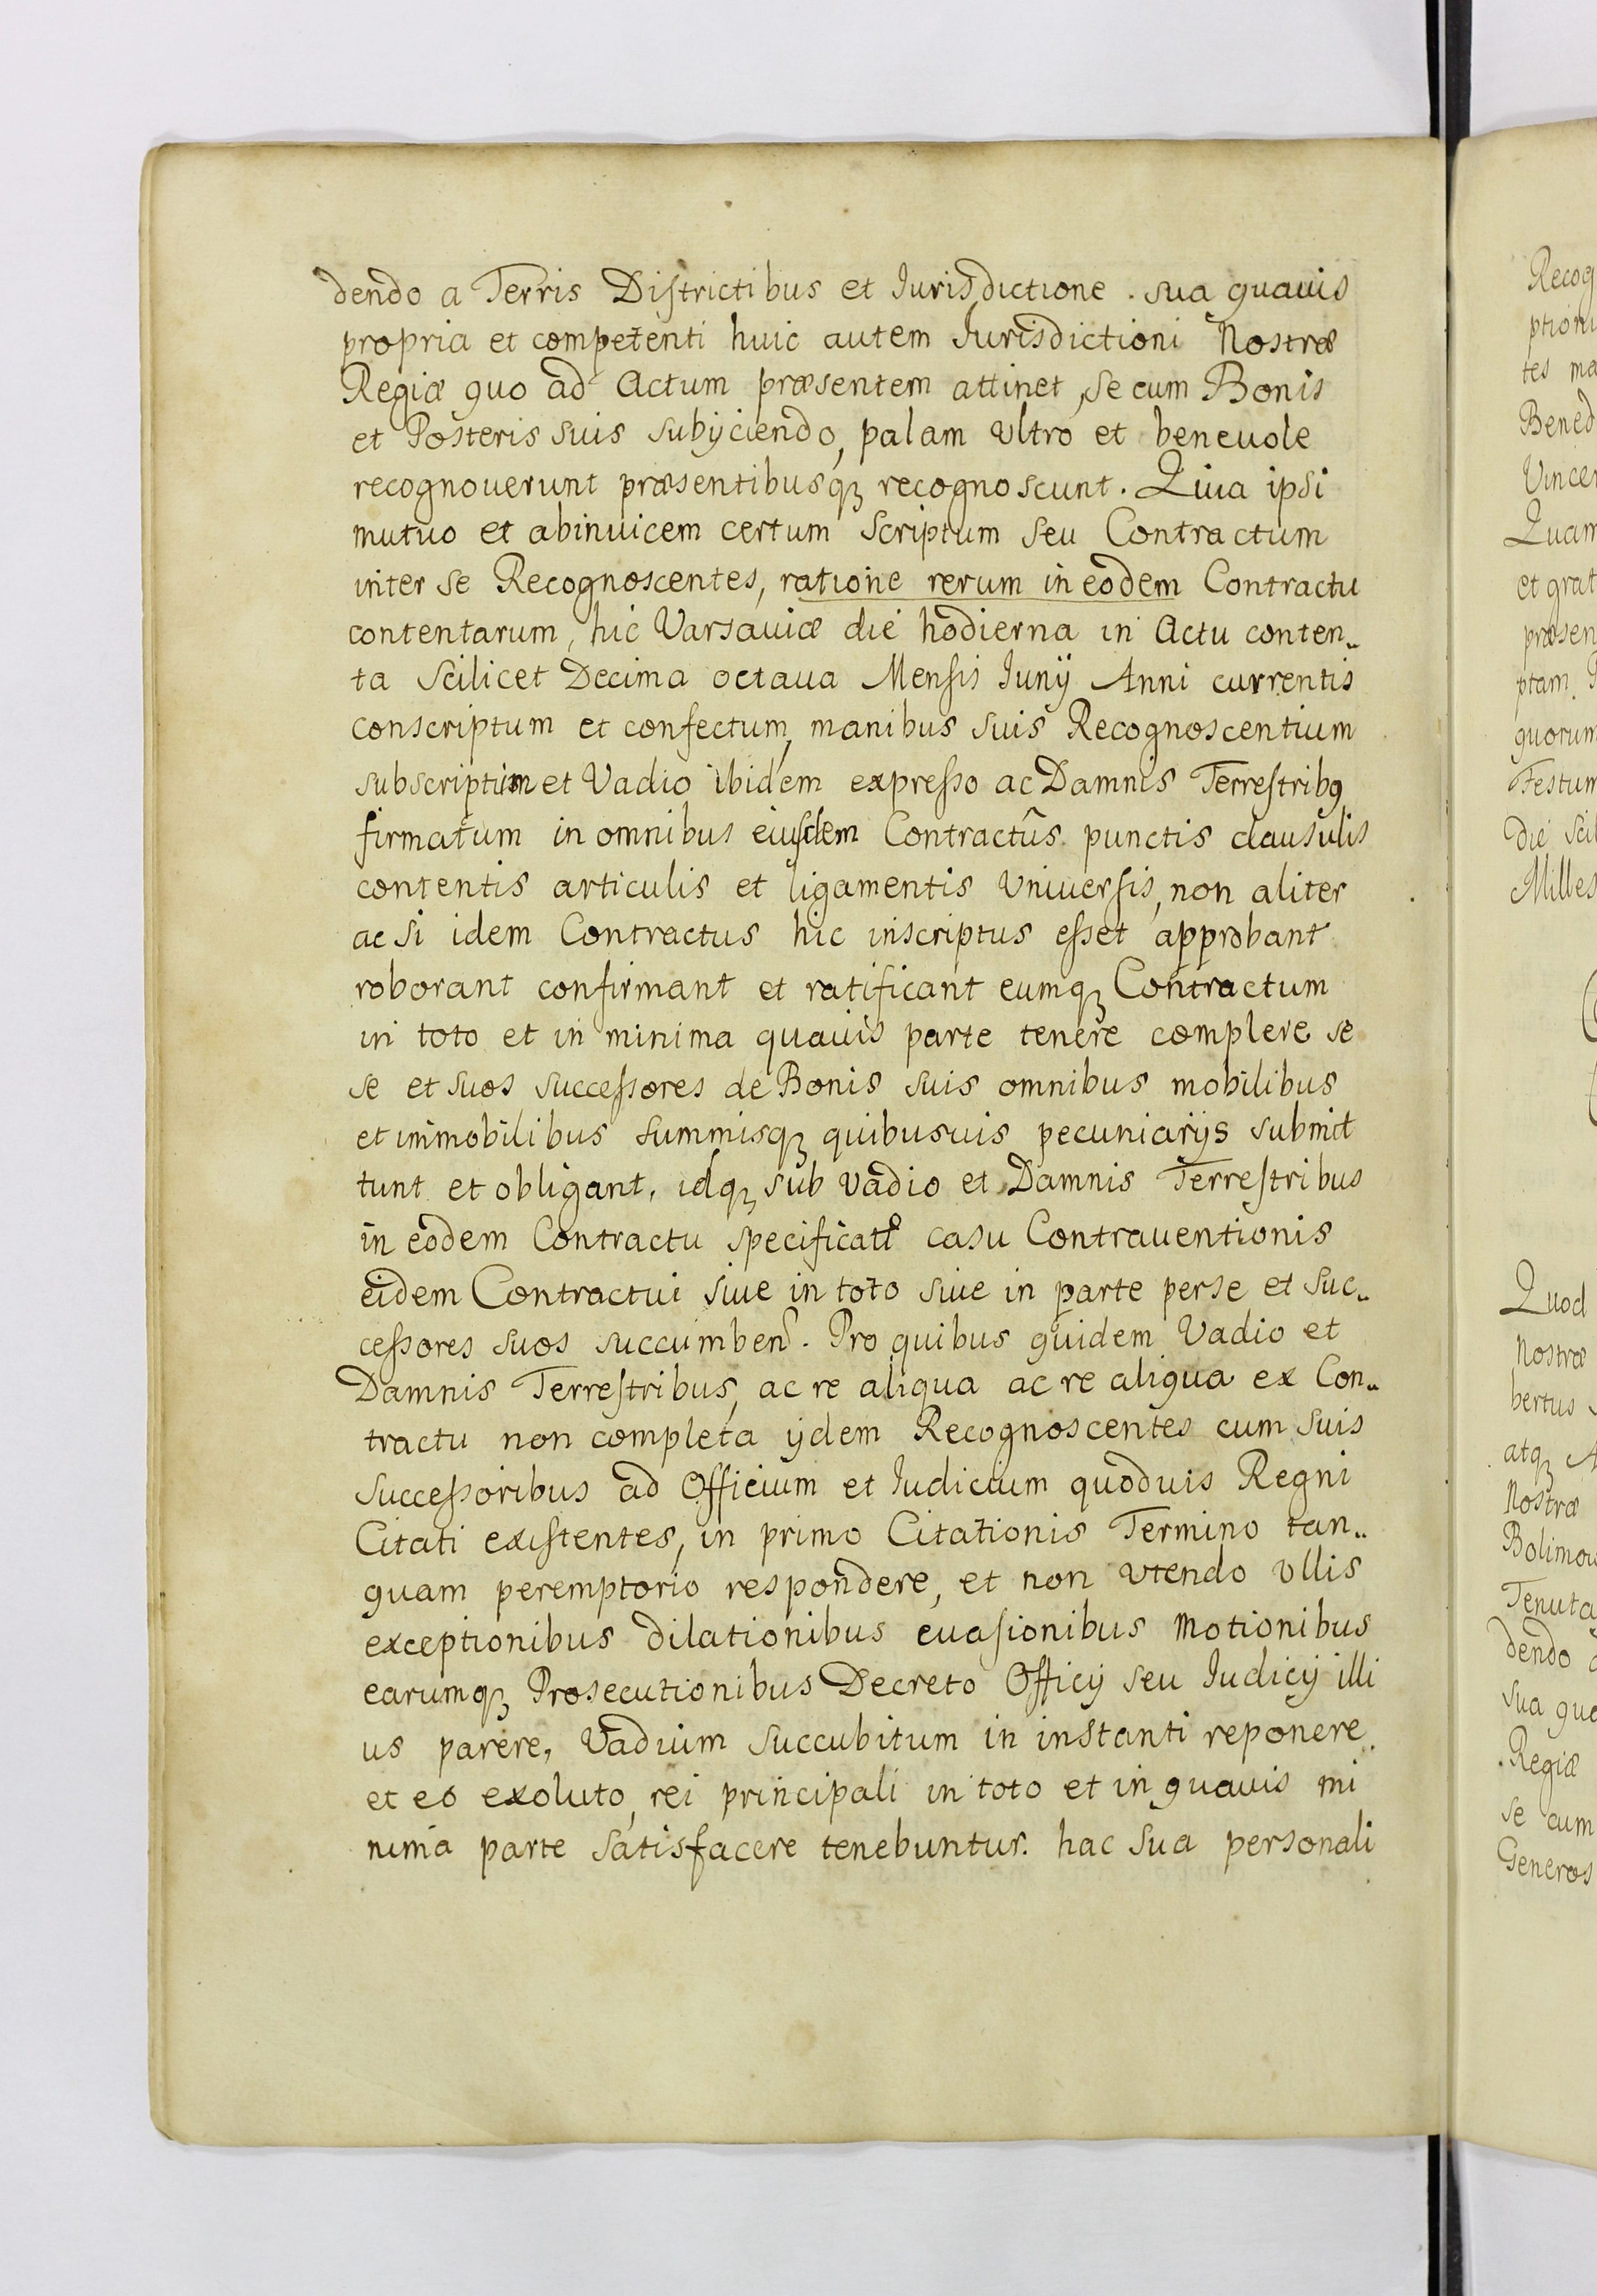 dendo a Terris Districtibus et Jurisdictione. sua quauis
propria et competenti huic autem Jurisdictioni Nostræ
Regiæ quo ad Actum præsentem attinet, se cum Bonis
et Posteris suis subijciendo, palam Vltro et beneuole
recognouerunt præsentibusqꝫ recognoscunt. Quia ipsi
mutuo et abinuicem certum scriptum seu Contractum
inter se Recognoscentes, ratione rerum in eodem Contractu
contentarum, hic Varsauiæ die hodierna in Actu conten„
ta scilicet Decima octaua Mensis Junij Anni currentis
conscriptum et confectum, manibus suis Recognoscentium
subscriptum et Vadio ibidem expresso ac Damnis Terrestribꝯ
firmatum in omnibus eiusdem Contractûs punctis clausulis
contentis articulis et ligamentis Vniuersis, non aliter
ac si idem Contractus hic inscriptus esset approbant
roborant confirmant et ratificant eumqꝫ Contractum
in toto et in minima quauis parte tenere complere se
se et suos successores de Bonis suis omnibus mobilibus
et immobilibus summisqꝫ quibusuis pecuniarijs submit
tunt et obligant, idqꝫ sub vadio et Damnis Terrestribus
in eodem Contractu specificatꝭ casu Contrauentionis
eidem Contractui siue in toto siue in parte perse et suc„
cessores suos succumbenꝭ. Pro quibus quidem Vadio et
Damnis Terrestribus, ac re aliqua ac re aliqua ex Con„
tractu non completa ijdem Recognoscentes cum suis
successoribus ad Officium et Judicium quoduis Regni
Citati existentes, in primo Citationis Termino tan„
quam peremptorio respondere, et non vtendo vllis
exceptionibus dilationibus euasionibus motionibus
earumqꝫ Prosecutionibus Decreto Officij seu Judicij illi
us parere, Vadium succubitum in instanti reponere
et eo exoluto, rei principali in toto et in quauis mi
nima parte satisfacere tenebuntur. hac sua personali
Recog
ptioni
tes ma
Bened
Vincen
Quam
et grat
præsen
ptam
quorum
Festum
die sci
Milles
Quod
Nostræ
bertus
atqꝫ A
Nostræ
Bolimou
Tenuta
dendo a
sua qua
Regiæ
se cum
Generos